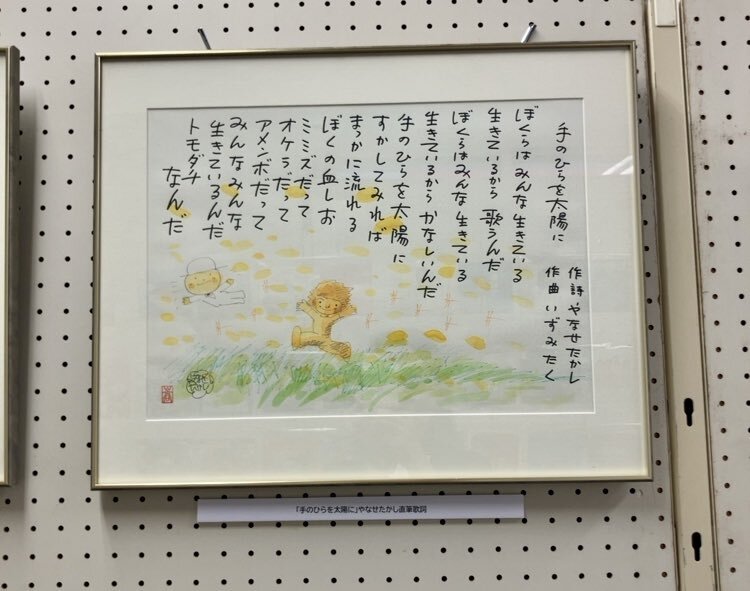 手のひらを太陽に
作詩 やなせたかし
作曲 いずみたく
ぼくらはみんな生きている
生きているから 歌うんだ
ぼくらはみんな 生きている
生きているから かなしいんだ
手のひらを太陽に
すかしてみれば
まっかに流れる
ぼくの血しお
ミミズだって
オケラだって
アメンボだって
みんなみんな
生きているんだ
トモダチ
なんだ
「手のひらを太陽に」やなせたかし直筆歌詞